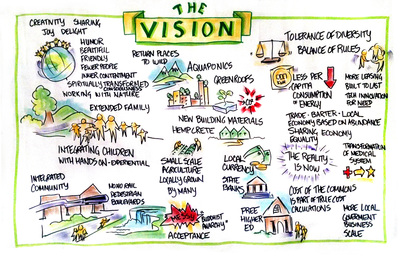 THE
VISION
CREATIVITY SHARING
JOY DELIGHT
HUMOR
BEAUTIFUL
FRIENDLY
FEWER PEOPLE
INNER CONTENTMENT
SPIRITUALLY TRANSFORMED
CONSCIOUSNESS
WORKING WITH NATURE
EXTENDED FAMILY
INTEGRATING CHILDREN
WITH HANDS ON-EXPERIENTIAL
INTEGRATED
COMMUNITY
MONO RAIL
PEDESTRIAN
BOULEVARDS
RETURN PLACES
TO WILD
AQUAPONICS
GREEN ROOFS
NEW BUILDING MATERIALS
HEMPCRETE
SMALL SCALE
AGRICULTURE
LOCALLY GROWN
BY MANY
LOCAL
CURRENCY
STATE
BANKS
MESSY
"BUDDHIST
ANARCHY"
ACCEPTANCE
FREE
HIGHER
ED
TOLERANCE OF DIVERSITY
BALANCE OF RULES
LESS PER
CAPITA
CONSUMPTION
OF ENERGY
MORE UPSING
BUILT TO LAST
TECH INNOVATION
FOR NEED
TRADE · BARTER · LOCAL
ECONOMY BASED ON ABUNDANCE
SHARING ECONOMY
EQUALITY
THE REALITY
IS NOW
TRANSFORMATION
OF MEDICAL
SYSTEM
COST OF THE COMMONS
IS PART OF TRUE COST
CALCULATIONS
MORE LOCAL
GOVERNMENT
BUSINESS
SCALE